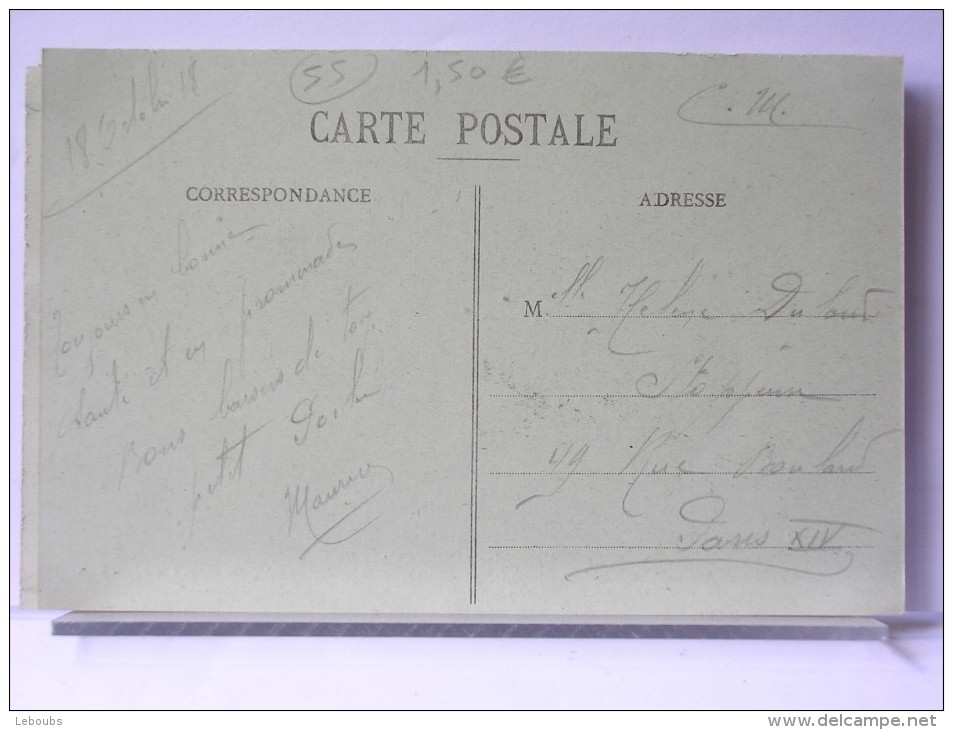 18 Octobre 18
55
1,50 €
C. M.
CARTE POSTALE
CORRESPONDANCE
ADRESSE
Toujours en bonne
Santé et en promenades
Bons baisers de ton
petit
Maurice
M. elle Helène
49 Rue Boulard
Paris XIV
Leboubs
www.delcampe.net